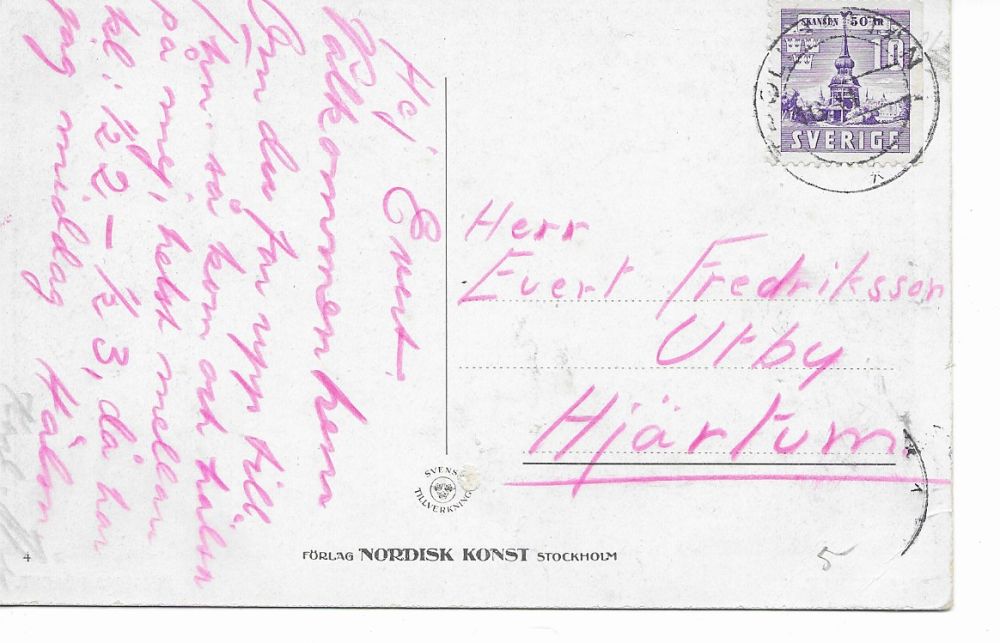 Hej Evert.
Välkommen hem
Om du far upp till
så kom och hälsa
på mej, helst mellan
kl. 1/2 2 – 1/2 3, då har
jag middag
SKANSEN 50 ÅR
10
SVERIGE
Herr
Evert Fredriksson
Utby
Hjärtum
SVENSK
TILLVERKNING
4
FÖRLAG NORDISK KONST STOCKHOLM
5